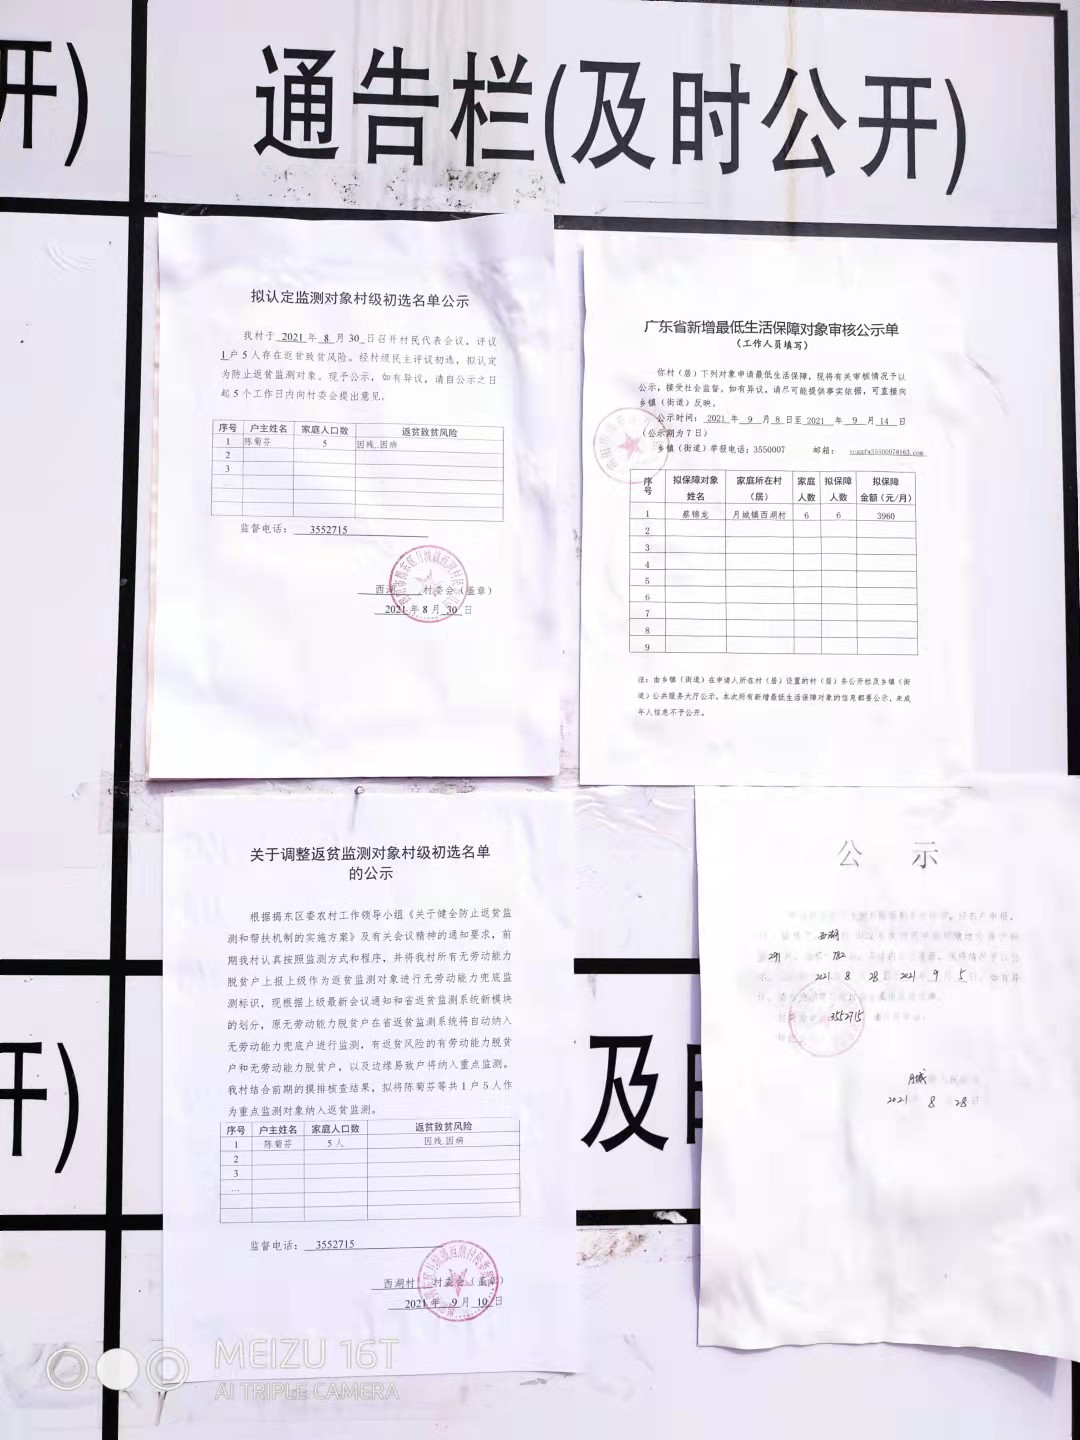 开)
通告栏(及时公开)
拟认定监测对象村级初选名单公示
我村于 2021 年 8 月 30 日召开村民代表会议，评议
1户5人存在返贫致贫风险。经村级民主评议初选，拟认定
为防止返贫监测对象。现予公示，如有异议，请自公示之日
起5个工作日内向村委会提出意见。
序号 户主姓名 家庭人口数 返贫致贫风险
1 陈菊芬 5 因残.因病
2
3
...
监督电话： 3552715
西湖 村委会（盖章）
2021 年 8 月 30 日
广东省新增最低生活保障对象审核公示单
（工作人员填写）
你村（居）下列对象申请最低生活保障，现将有关审核情况予以
公示，接受社会监督。如有异议，请尽可能提供事实依据，可直接向
乡镇（街道）反映。
公示时间：2021 年 9 月 8 日至 2021 年 9 月 14 日
（公示期为7日）
乡镇（街道）举报电话：3550007 邮箱：
序号 拟保障对象姓名 家庭所在村（居） 家庭人数 拟保障人数 拟保障金额（元/月）
1 蔡锦龙 月城镇西湖村 6 6 3960
2
3
4
5
6
7
8
9
注：由乡镇（街道）在申请人所在村（居）设置的村（居）务公开栏及乡镇（街
道）公共服务大厅公示，本次所有新增最低生活保障对象的信息都要公示，未成
年人信息不予公开。
关于调整返贫监测对象村级初选名单
的公示
根据揭东区委农村工作领导小组《关于健全防止返贫监
测和帮扶机制的实施方案》及有关会议精神的通知要求，前
期我村认真按照监测方式和程序，并将我村所有无劳动能力
脱贫户上报上级作为返贫监测对象进行无劳动能力兜底监
测标识，现根据上级最新会议通知和省返贫监测系统新模块
的划分，原无劳动能力脱贫户在省返贫监测系统将自动纳入
无劳动能力兜底户进行监测，有返贫风险的有劳动能力脱贫
户和无劳动能力脱贫户，以及边缘易致户将纳入重点监测。
我村结合前期的摸排核查结果，拟将陈菊芬等共1户5人作
为重点监测对象纳入返贫监测。
序号 户主姓名 家庭人口数 返贫致贫风险
1 陈菊芬 5人 因残.因病
2
3
...
监督电话： 3552715
西湖村 村委会（盖章）
2021 年 9 月 10 日
公 示
西湖
291 782
2021 8 28 2021 9 月 5 日
3552715
月城
2021 8 28 日
开)
及时
MEIZU 16T
AI TRIPLE CAMERA